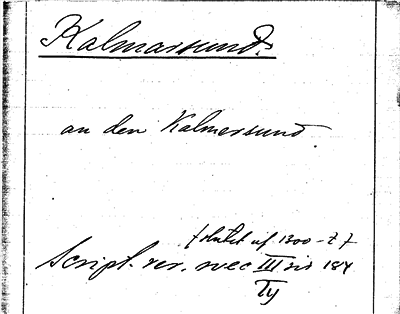 Kalmarsund
an den Kalmersund.
(slutet af 1300-t.)
Script. rer. svec III sid 184
Ty